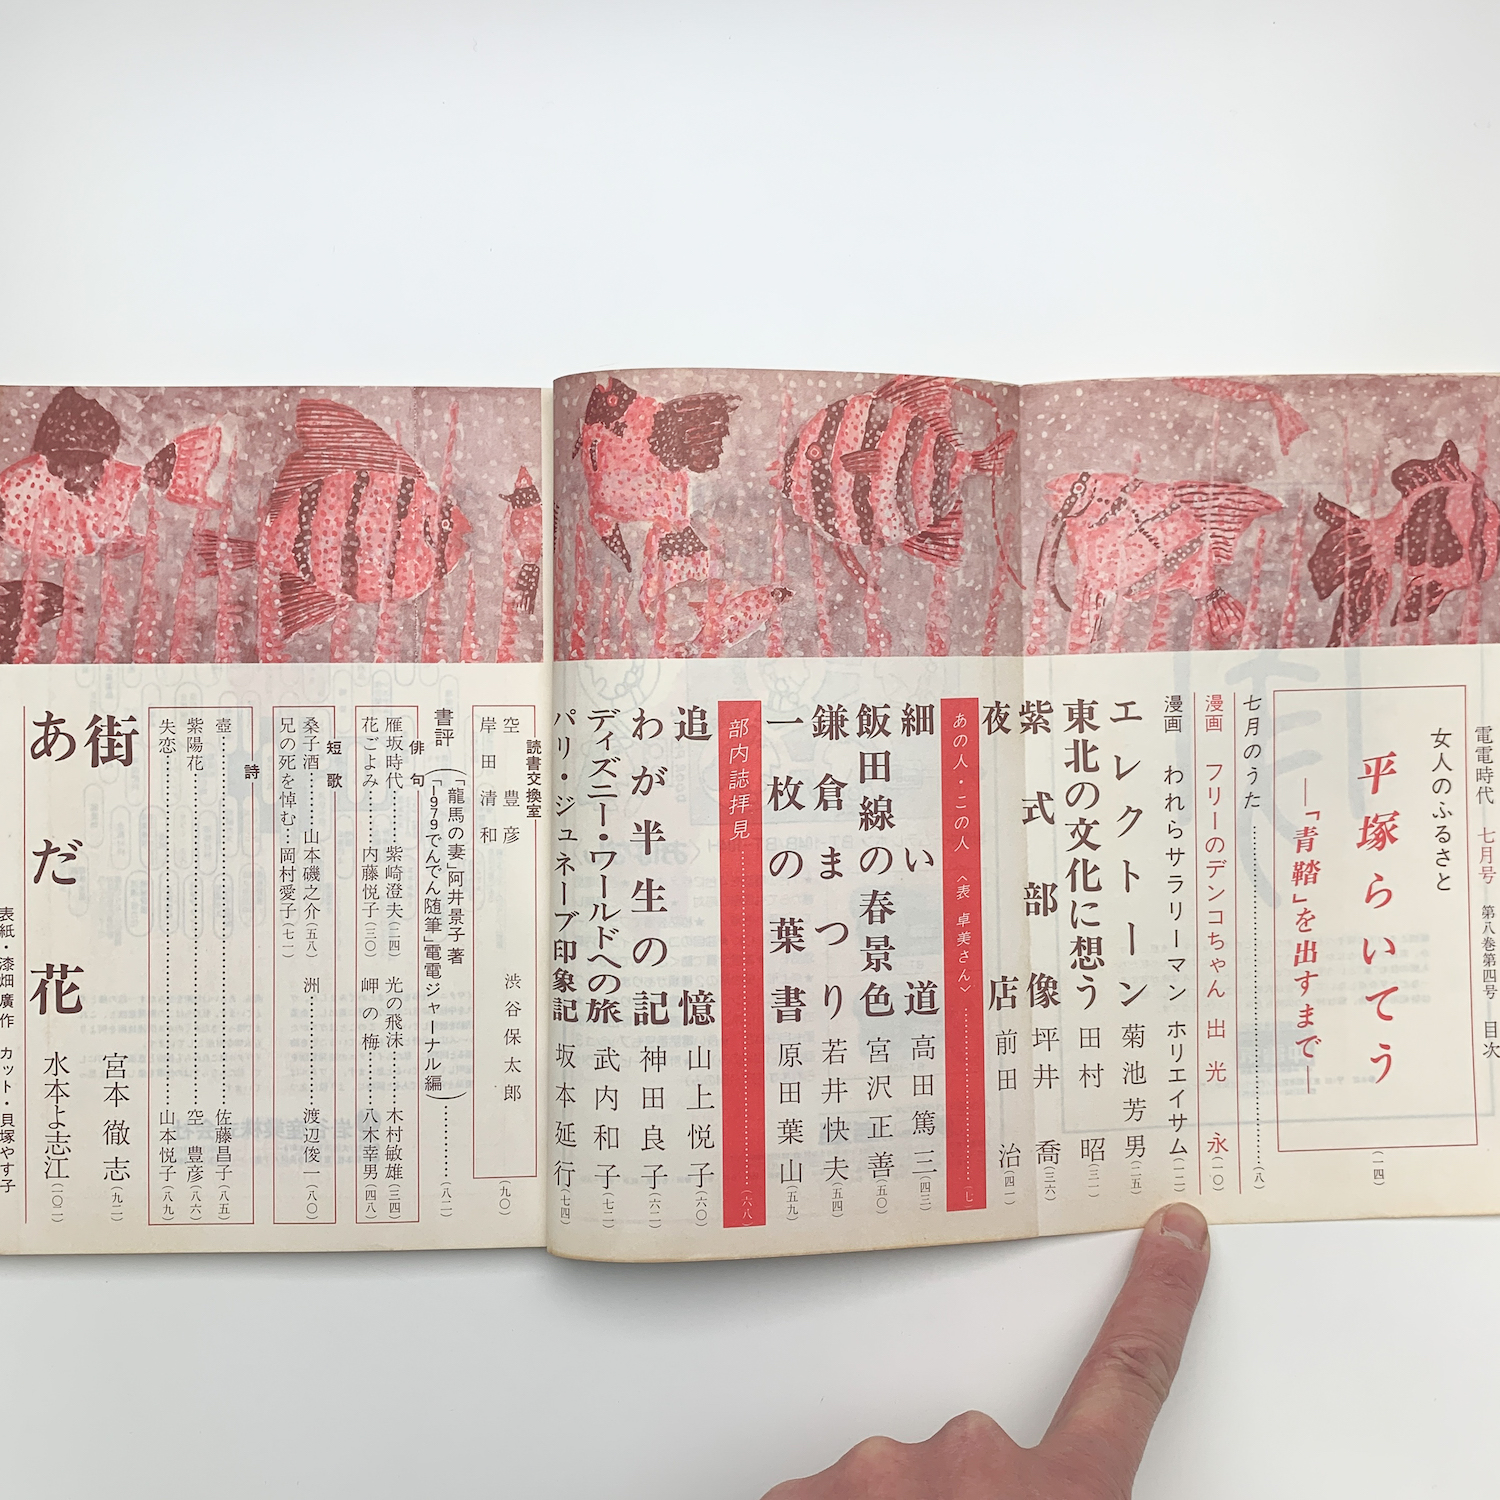 電電時代 七月号 第八巻第四号 目次
女人のふるさと
平塚らいてう
―「青鞜」を出すまで―
(一四)
七月のうた……(八)
漫画 フリーのデンコちゃん 出光 永(一〇)
漫画 われらサラリーマン ホリエイサム(一二)
エレクトーン 菊池芳男(二五)
東北の文化に想う 田村 昭(三一)
紫式部像 坪井 喬(三六)
夜店 前田 治(四一)
あの人・この人〈表 卓美さん〉……(一七)
細い道 高田篤三(四三)
飯田線の春景色 宮沢正善(五〇)
鎌倉まつり 若井快夫(五四)
一枚の葉書 原田葉山(五九)
部内誌拝見……(六八)
追憶 山上悦子(六〇)
わが半生の記 神田良子(六二)
ディズニー・ワールドへの旅 武内和子(七二)
パリ・ジュネーブ印象記 坂本延行(七四)
読書交換室
空 豊彦 渋谷保太郎
岸田清和
(九〇)
書評(「龍馬の妻」阿井景子 著
「1979でんでん随筆」電電ジャーナル編)……(八二)
俳句
雁坂時代……紫崎澄夫(二四) 光の飛沫……木村敏雄(三四)
花ごよみ……内藤悦子(三〇) 岬の梅……八木幸男(四八)
短歌
桑子酒……山本磯之介(五八) 洲……渡辺俊一(八〇)
兄の死を悼む…岡村愛子(七一)
詩
壺……佐藤昌子(八五)
紫陽花……空 豊彦(八六)
失恋……山本悦子(八九)
街 宮本徹志(九二)
あだ花 水本よ志江(一〇二)
表紙・漆畑廣作 カット・貝塚やす子